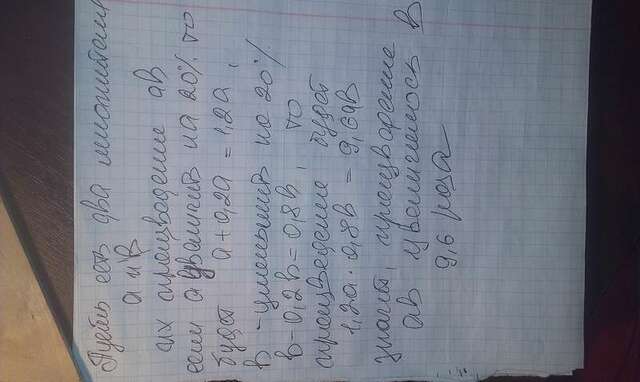 Пусть есть два множителя
а и В
их произведение ав
если а увеличить на 20% то
будет а+0,2а = 1,2а,
в - уменьшить на 20%
в-0,2в=0,8в, то
произведение будет
1,2а · 0,8в = 9,6ав
значит, произведение
ав увеличилось в
9,6 раза